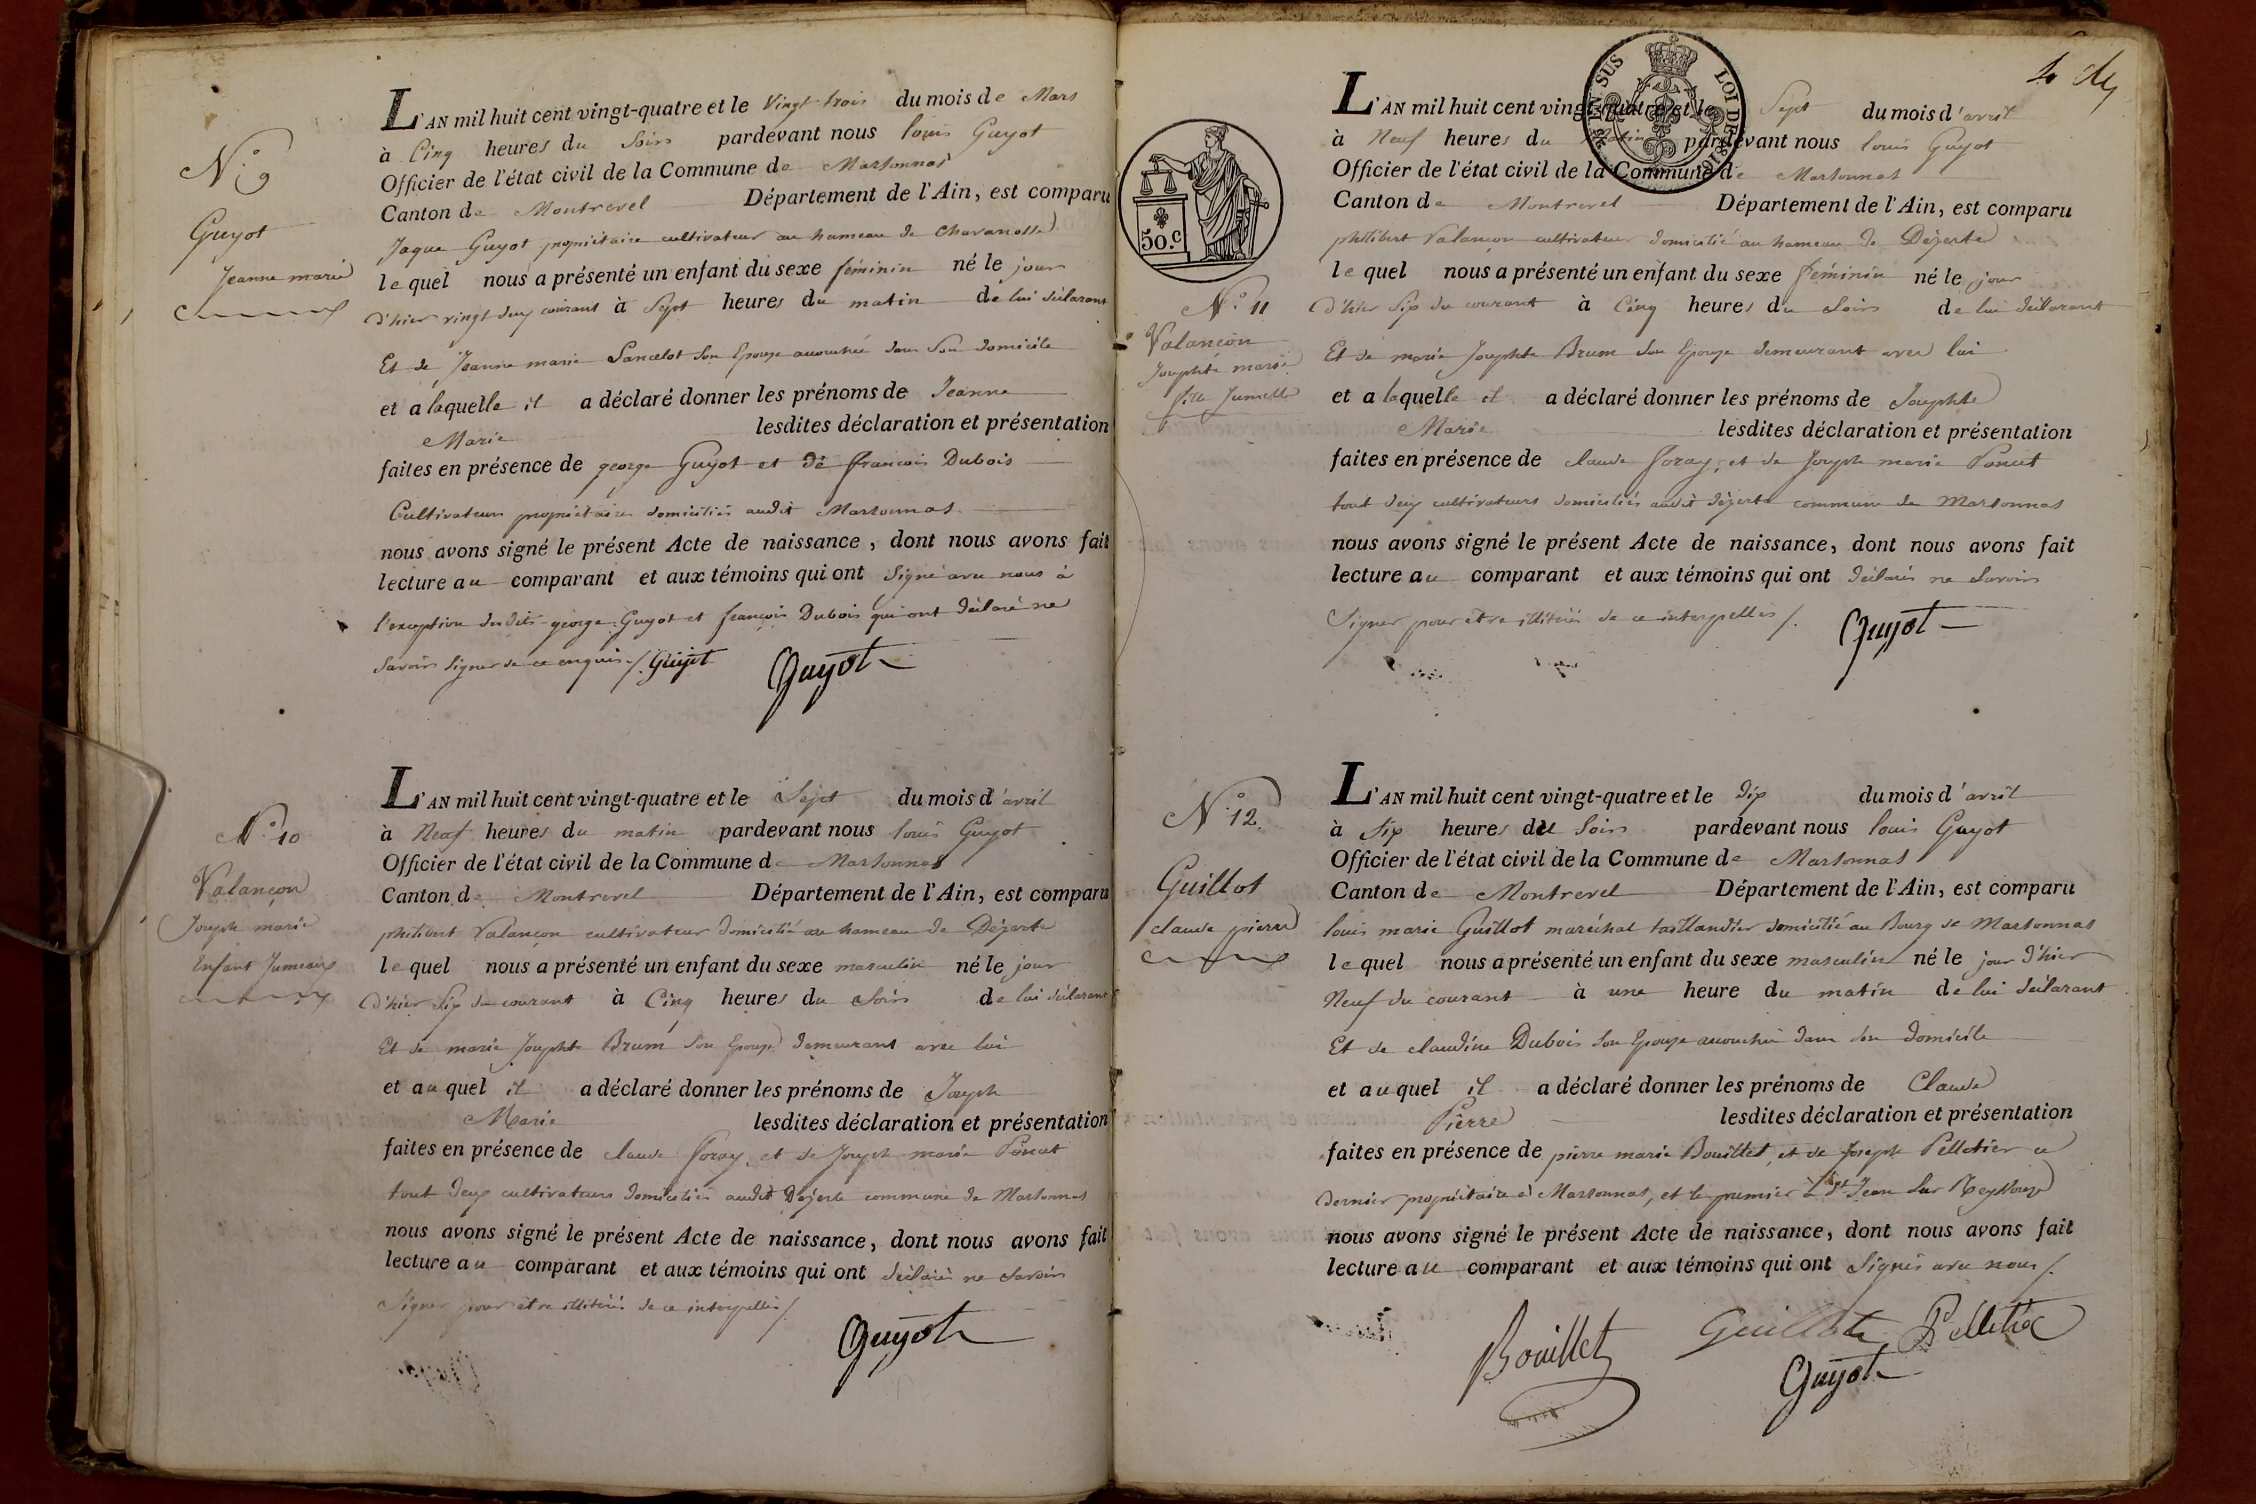 N.° 9
Guyot
Jeanne marie
L'AN mil huit cent vingt-quatre et le Vingt trois du mois de Mars
à Cinq heures du Soir pardevant nous louis Guyot
Officier de l'état civil de la Commune de Marsonnas
Canton de Montrevel Département de l'Ain, est comparu
Jaque Guyot propriétaire cultivateur au hameau de
le quel nous a présenté un enfant du sexe féminin né le jour
d'hier vingt deux courant à Sept heures du matin de lui déclarant
Et de Jeanne marie Lancelot Son Epouse accouchée dans Son domicile
et a laquelle il a déclaré donner les prénoms de Jeanne
Marie lesdites déclaration et présentation
faites en présence de george Guyot et de francois Dubois
Cultivateurs propriétaires domiciliés audit Marsonnas
nous avons signé le présent Acte de naissance, dont nous avons fait
lecture au comparant et aux témoins qui ont Signé avec nous à
l'exception desdits george Guyot et françois Dubois qui ont déclaré ne
Savoir Signer de ce enquis /. Guyot Guyot
N.° 10
Valançon
Joseph marie
Enfant Jumeaux
L'AN mil huit cent vingt-quatre et le Sept du mois d'avril
à Neuf heures du matin pardevant nous louis Guyot
Officier de l'état civil de la Commune de Marsonnas
Canton de Montrevel Département de l'Ain, est comparu
philibert Valançon cultivateur domicilié au hameau de Dézerte
le quel nous a présenté un enfant du sexe masculin né le jour
d'hier Six du courant à Cinq heures du Soir de lui déclarant
Et de marie Josephte Brum Son Epouse demeurant avec lui
et auquel il a déclaré donner les prénoms de Joseph
Marie lesdites déclaration et présentation
faites en présence de claude foray et de Joseph marie Poncet
tout deux cultivateurs domiciliés audit Dézerte commune de Marsonnas
nous avons signé le présent Acte de naissance, dont nous avons fait
lecture au comparant et aux témoins qui ont déclarés ne Savoir
Signer pour être illitérés de ce interpellés /.
Guyot
50.C
N.° 11
Valancon
Josephte marie
fille Jumelle
L'AN mil huit cent vingt-quatre et le Sept du mois d'avril
à Neuf heures du Matin pardevant nous louis Guyot
Officier de l'état civil de la Commune de Marsonnas
Canton de Montrevel Département de l'Ain, est comparu
philibert Valançon cultivateur domicilié au hameau de Dézerte
le quel nous a présenté un enfant du sexe féminin né le jour
d'hier Six du courant à Cinq heures du Soir de lui déclarant
Et de marie Josephte Brum Son Epouse demeurant avec lui
et a laquelle il a déclaré donner les prénoms de Josephte
Marie lesdites déclaration et présentation
faites en présence de claude foray, et de Joseph marie Poncet
tout deux cultivateurs domiciliés audit dézerte commune de Marsonnas
nous avons signé le présent Acte de naissance, dont nous avons fait
lecture au comparant et aux témoins qui ont déclarés ne Savoir
Signer pour être illitérés de ce interpellés /.
Guyot
N.° 12.
Guillot
claude pierre
L'AN mil huit cent vingt-quatre et le dix du mois d'avril
à Six heures du Soir pardevant nous louis Guyot
Officier de l'état civil de la Commune de Marsonnas
Canton de Montrevel Département de l'Ain, est comparu
louis marie Guillot maréchal taillandier domicilié au Bourg de Marsonnas
le quel nous a présenté un enfant du sexe masculin né le jour d'hier
Neuf du courant à une heure du matin de lui déclarant
Et de claudine Dubois Son Epouse accouchée dans Son domicile
et auquel il a déclaré donner les prénoms de Claude
Pierre lesdites déclaration et présentation
faites en présence de pierre marie Bouillet, et de Joseph Pelletier ce
dernier propriétaire à Marsonnas, et le premier à St Jean Sur Reyssouze
nous avons signé le présent Acte de naissance, dont nous avons fait
lecture au comparant et aux témoins qui ont Signés avec nous /.
Bouillet Guillot Pelletier
Guyot